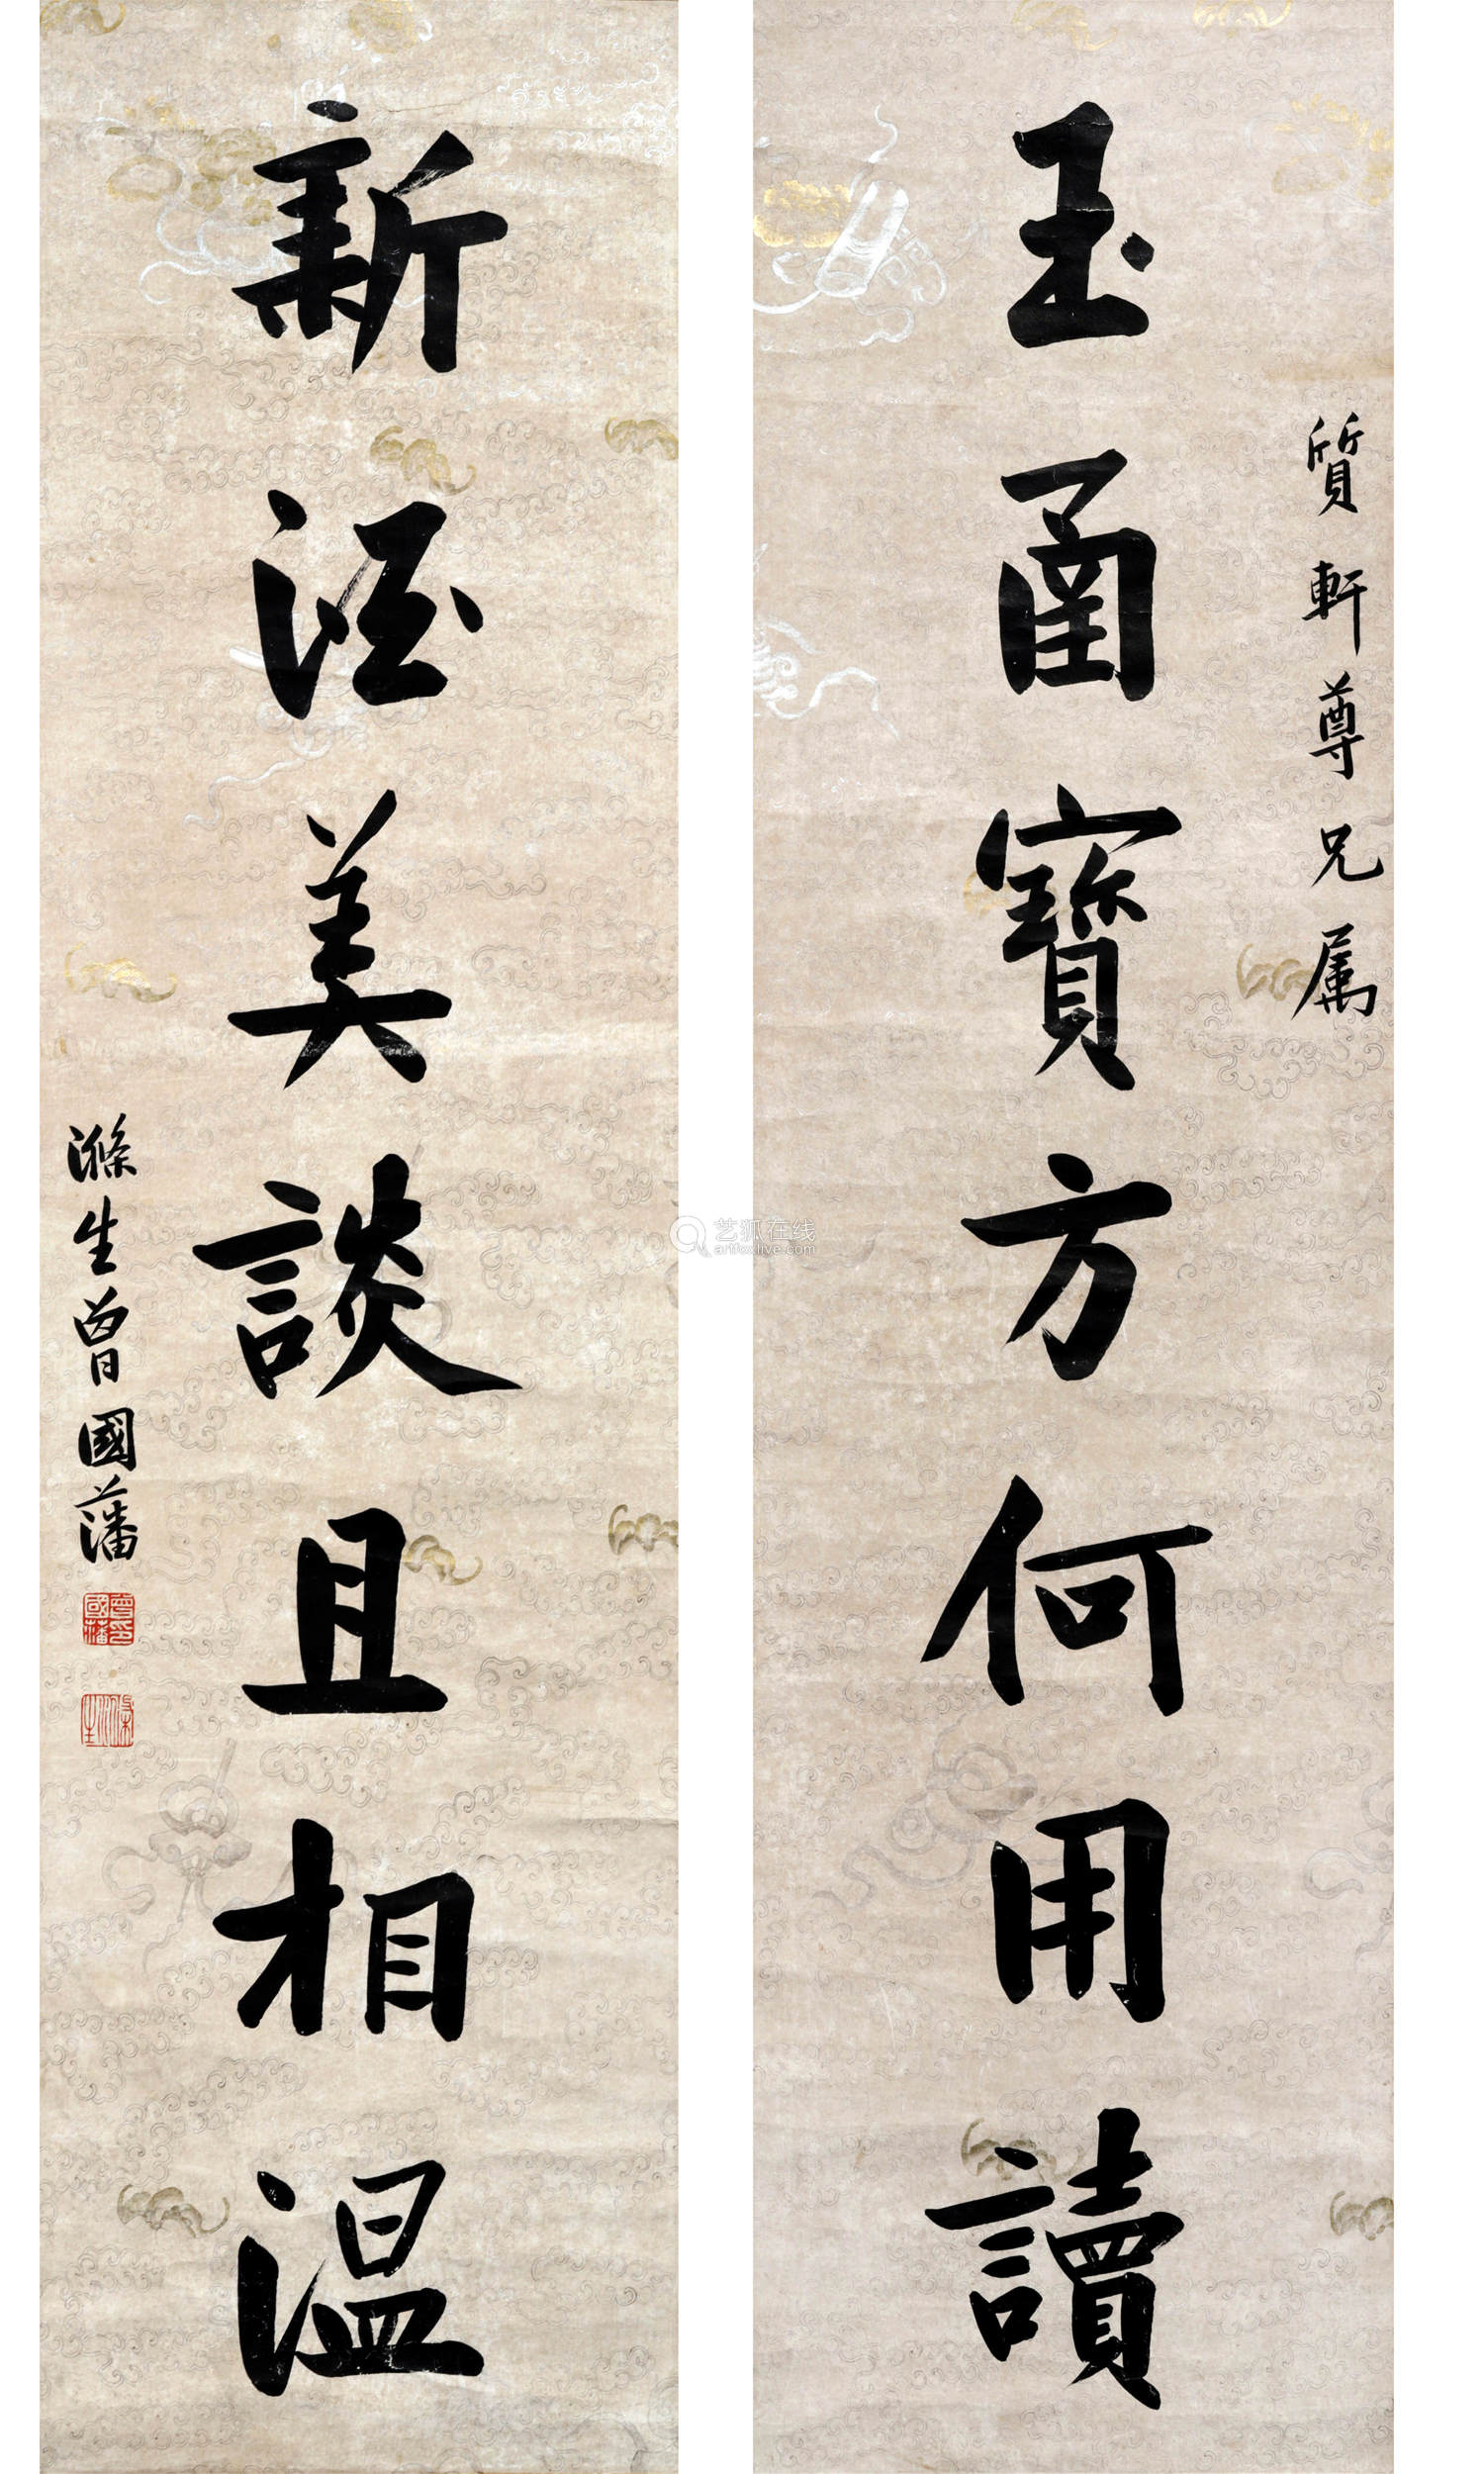 質軒尊兄属
玉圅寶方何用讀
新酒美談且相温
滌生曾國藩
曾國藩印
滌生
艺狐在线
artfoxlive.com